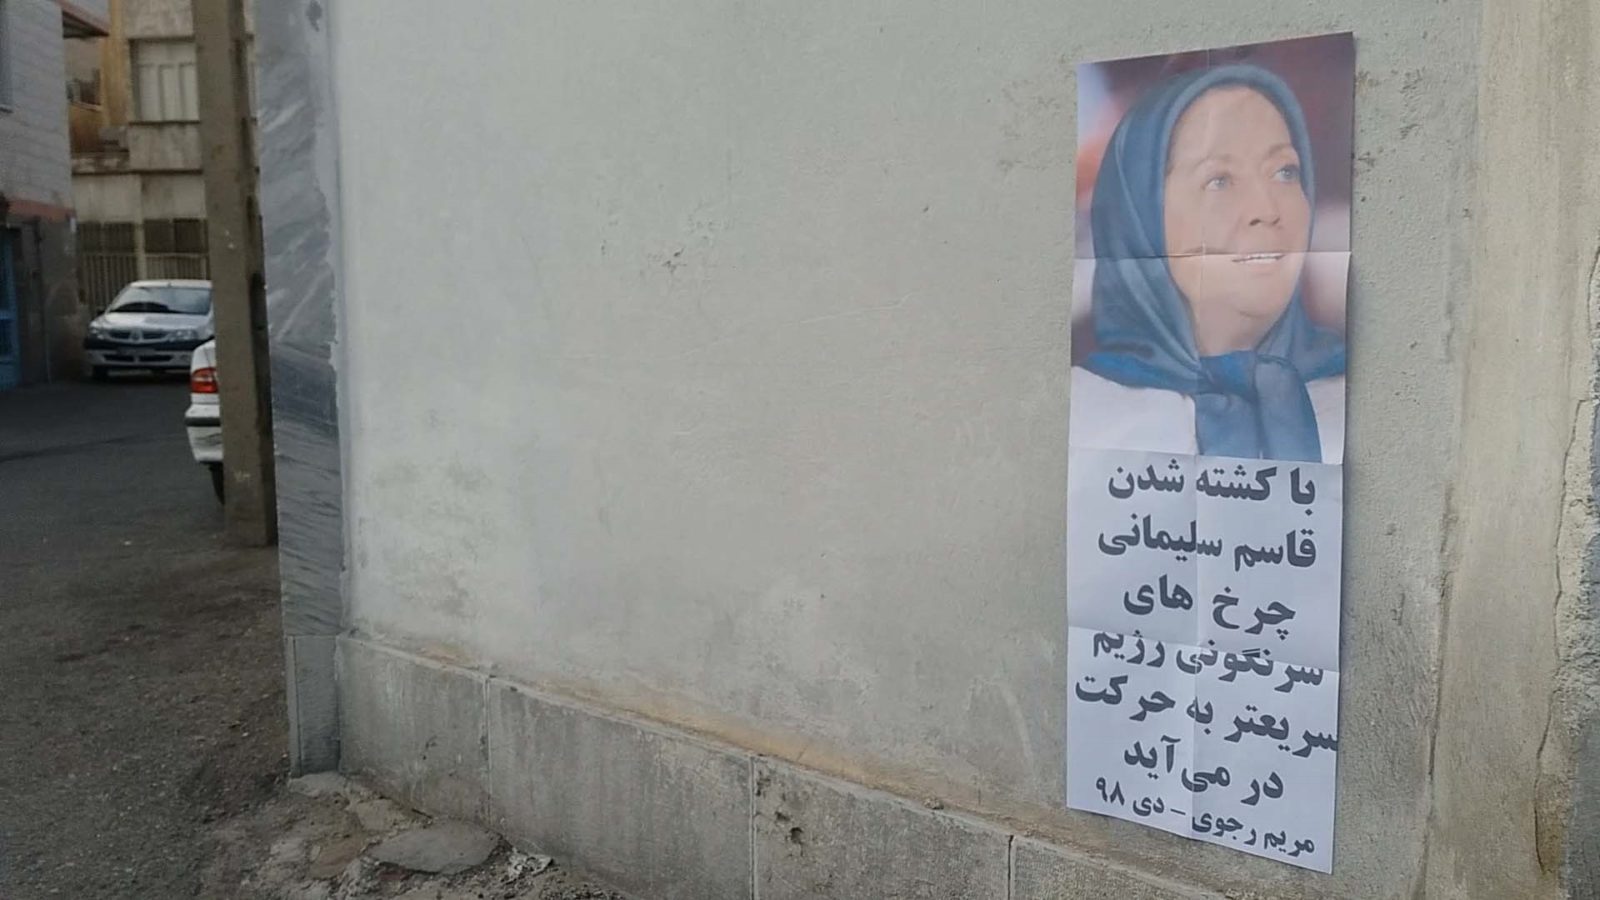 با کشته شدن
قاسم سلیمانی
چرخ های
سرنگونی رژیم
سریعتر به حرکت
در می آید
مریم رجوی - دی ۹۸